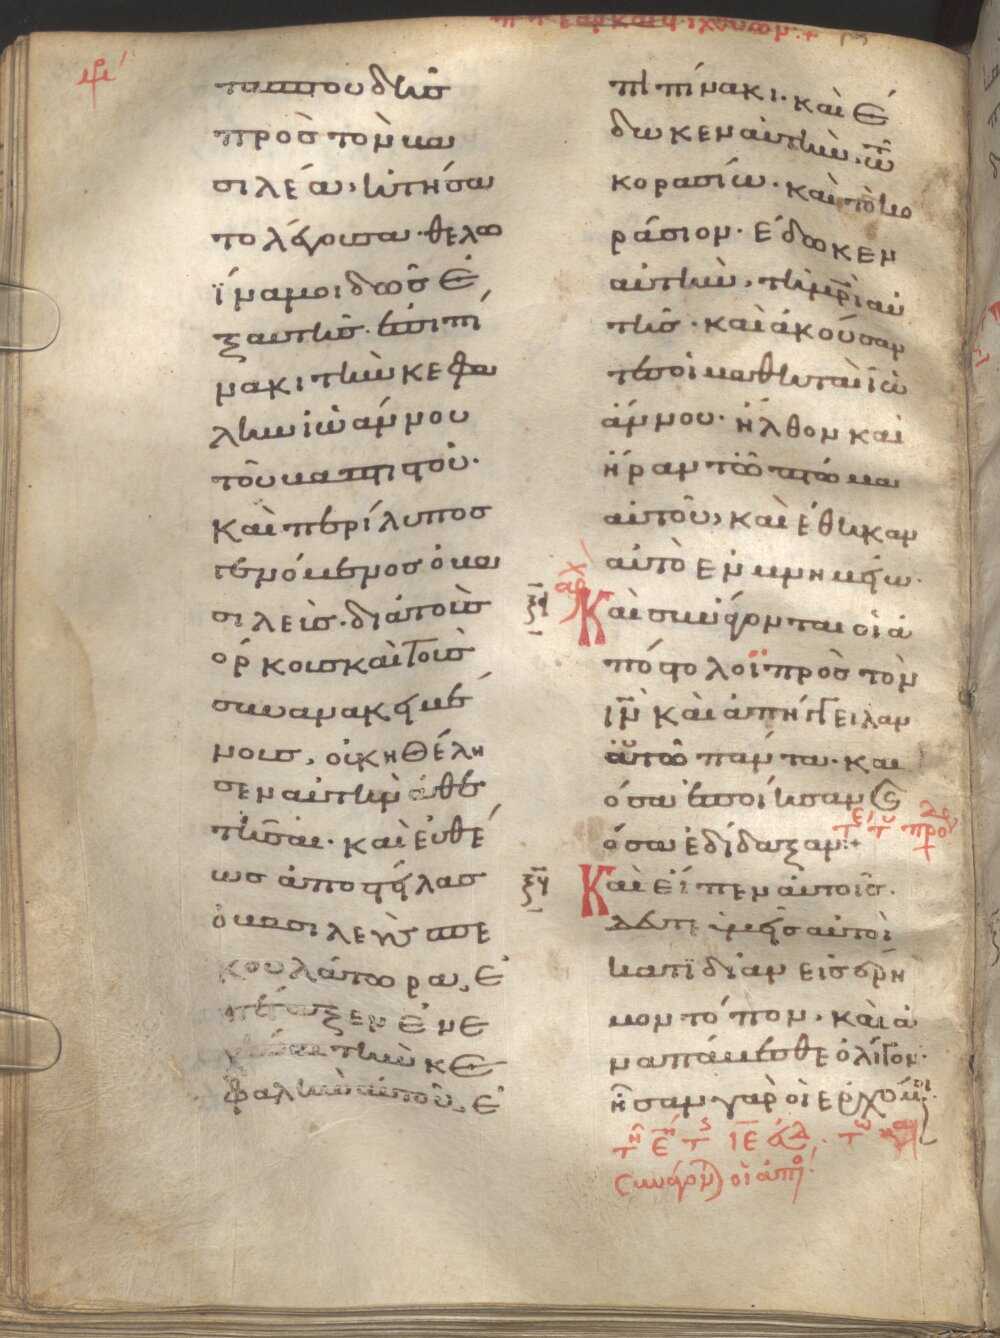 τα σπουδῆς
πρὸς τὸν βα
σιλέα, ἠτήσα
το λέγουσα· θέλω
ἵνα μοι δῶς ἐ
ξαυτῆς· ἐπὶ πί
νακι τὴν κεφα
λὴν ἰῶάννου
τοῦ βαπτιστοῦ·
Καὶ περίλυπος
γενόμενος ὁ βα
σιλεὺς· διὰ τοὺς
ὅρκους καὶ τοὺς
συνανακειμέ
νους, οὐκ ἠθέλη
σεν αὐτὴν ἀθε
τῆσαι· καὶ εὐθέ
ως ἀποστείλας
ὁ βασιλεὺς σπε
κουλάτωρα, ἐ
πέταξεν ἐνε
χθῆναι τὴν κε
φαλὴν αὐτοῦ, ὁ
πὶ πίνακι· καὶ ἔ
δωκεν αὐτὴν, τῶ
κορασίω· καὶ τὸ κο
ράσιον· ἔδωκεν
αὐτὴν, τῆ μρι αὐ
τῆς· καὶ ἀκούσαν
τες οἱ μαθηταὶ ἰω
άννου· ἦλθον καὶ
ἦραν τὸ πτῶμα
αὐτοῦ, καὶ ἔθηκαν
αὐτὸ ἐν μνημείω·
ξα Καὶ συνάγονται οἱ ἀ
πόστολοϊ πρὸς τὸν
ιν καὶ ἀπήγγειλαν
αὐτῶ πάντα· καὶ
ὅσα ἐποίησαν καὶ
ὅσα ἐδίδαξαν·+
ξβ Καὶ εἶπεν αὐτοῖς·
δεῦτε ὑμεῖς αὐτοὶ
κατϊδίαν εἰς ἔρη
μον τόπον, καὶ ἀ
ναπαύεσθε ὀλίγον·
ἦσαν γὰρ οἱ ἐρχόμνοι